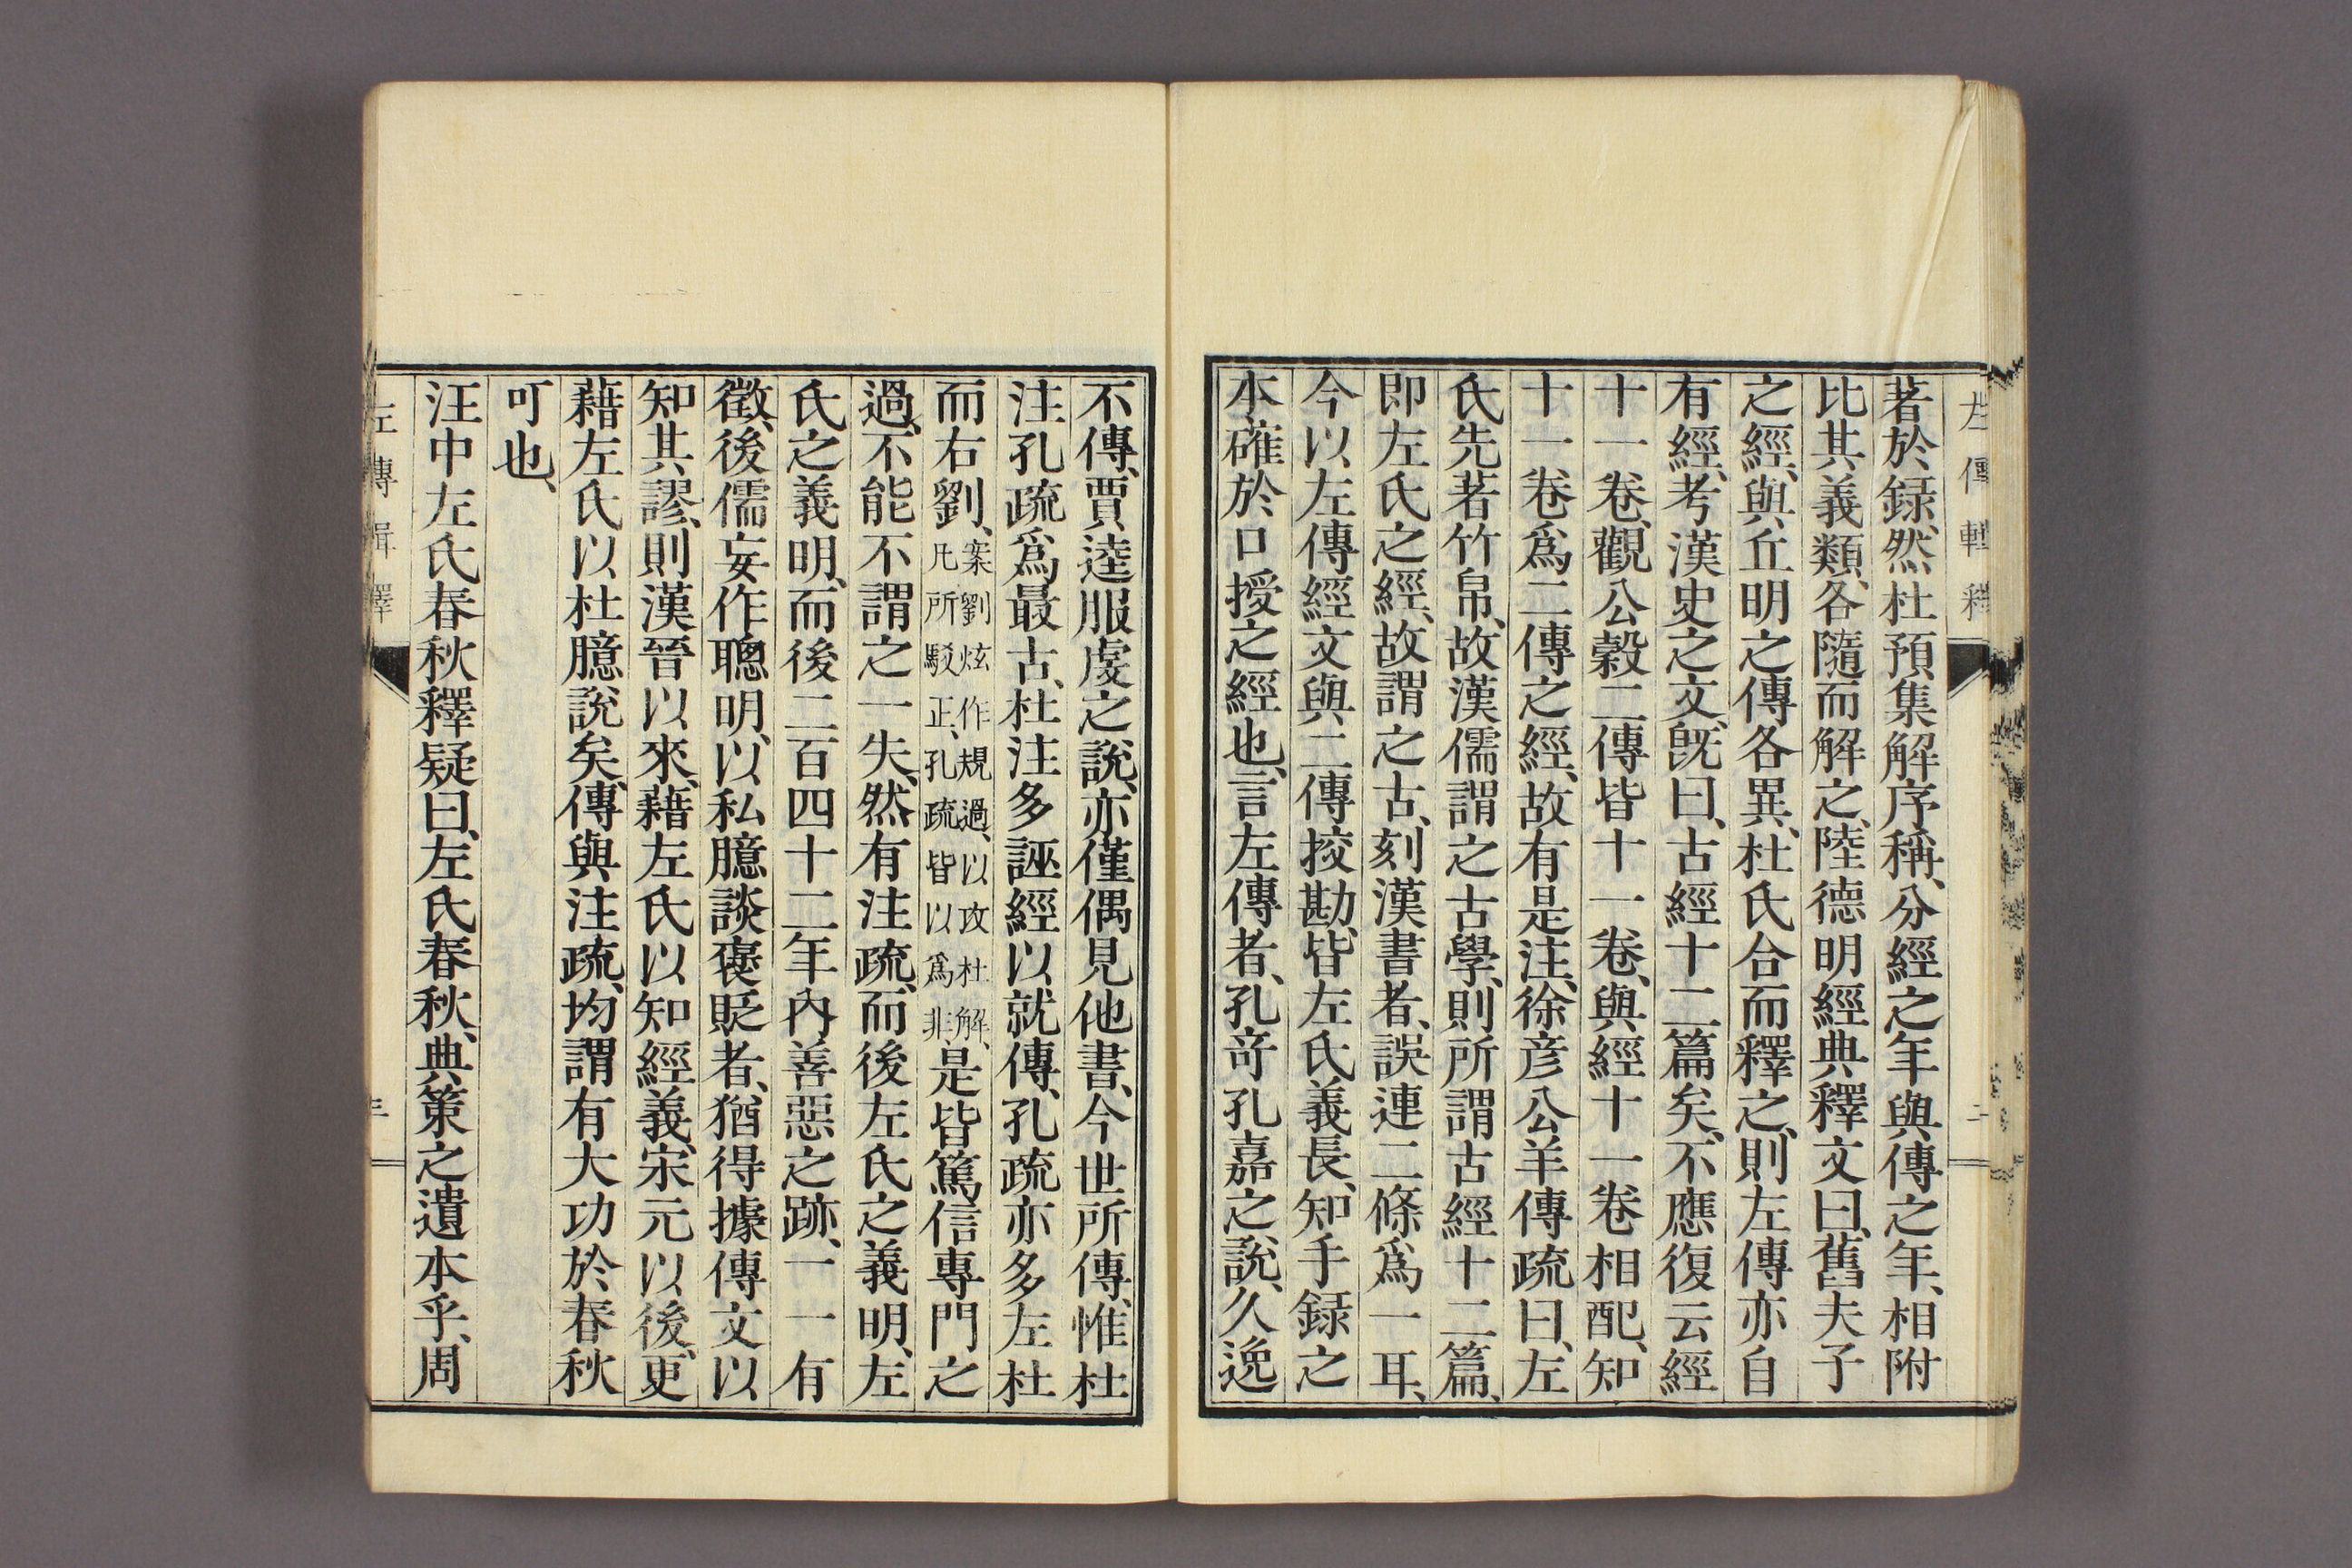 左傳輯釋
二
著於録、然杜預集解序稱、分經之年與傳之年、相附
比其義類、各隨而解之、陸德明經典釋文曰、舊夫子
之經、與丘明之傳各異、杜氏合而釋之、則左傳亦自
有經、考漢史之文、旣曰、古經十二篇矣、不應復云經
十一卷、觀公穀二傳皆十一卷、與經十一卷相配、知
十一卷爲二傳之經、故有是注、徐彦公羊傳疏曰、左
氏先著竹帛、故漢儒謂之古學、則所謂古經十二篇、
即左氏之經、故謂之古、刻漢書者、誤連二條爲一耳、
今以左傳經文與二傳挍勘、皆左氏義長、知手録之
本、確於口授之經也、言左傳者、孔奇孔嘉之說、久逸
不傳、賈逵服虔之說、亦僅偶見他書、今世所傳、惟杜
注孔疏爲最古、杜注多誣經以就傳、孔疏亦多左杜
而右劉、案劉炫作規過、以攻杜解、凡所駁正、孔疏皆以爲非、是皆篤信專門之
過、不能不謂之一失、然有注疏、而後左氏之義明、左
氏之義明、而後二百四十二年內善惡之跡、一一有
徵、後儒妄作聰明、以私臆談襃貶者、猶得據傳文以
知其謬、則漢晉以來、藉左氏以知經義、宋元以後、更
藉左氏以杜臆說矣、傳與注疏、均謂有大功於春秋
可也、
汪中左氏春秋釋疑曰、左氏春秋、典策之遺本乎、周
左傳輯釋
三